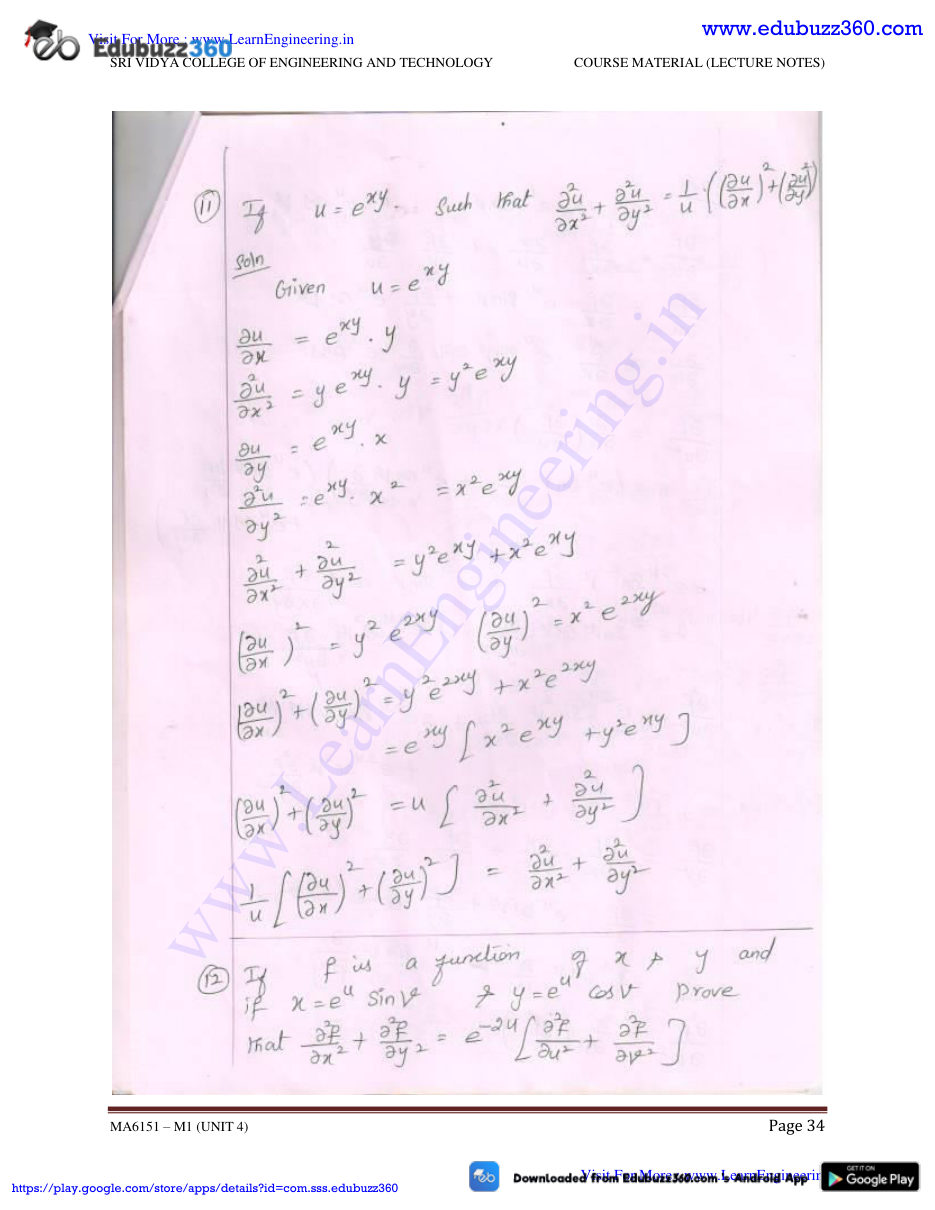 www.edubuzz360.com
Visit For More : www.LearnEngineering.in
Edubuzz360
SRI VIDYA COLLEGE OF ENGINEERING AND TECHNOLOGY COURSE MATERIAL (LECTURE NOTES)
11 If u = e^{xy}. Such that ∂²u/∂x² + ∂²u/∂y² = 1/u ((∂u/∂x)² + (∂u/∂y)²)
Soln
Given u = e^{xy}
∂u/∂x = e^{xy} . y
∂²u/∂x² = y e^{xy} . y = y² e^{xy}
∂u/∂y = e^{xy} . x
∂²u/∂y² = e^{xy} . x² = x² e^{xy}
∂²u/∂x² + ∂²u/∂y² = y² e^{xy} + x² e^{xy}
(∂u/∂x)² = y² e^{2xy} (∂u/∂y)² = x² e^{2xy}
(∂u/∂x)² + (∂u/∂y)² = y² e^{2xy} + x² e^{2xy}
= e^{xy} [x² e^{xy} + y² e^{xy}]
(∂u/∂x)² + (∂u/∂y)² = u [∂²u/∂x² + ∂²u/∂y²]
1/u [(∂u/∂x)² + (∂u/∂y)²] = ∂²u/∂x² + ∂²u/∂y²
12 If f is a function of x & y and
if x = e^u Sin v & y = e^u cos v prove
that ∂²f/∂x² + ∂²f/∂y² = e^{-2u} [∂²f/∂u² + ∂²f/∂v²]
www.LearnEngineering.in
MA6151 – M1 (UNIT 4) Page 34
https://play.google.com/store/apps/details?id=com.sss.edubuzz360
Downloaded from EduBuzz360.com 's Android App
Visit For More : www.LearnEngineerin
GET IT ON
Google Play